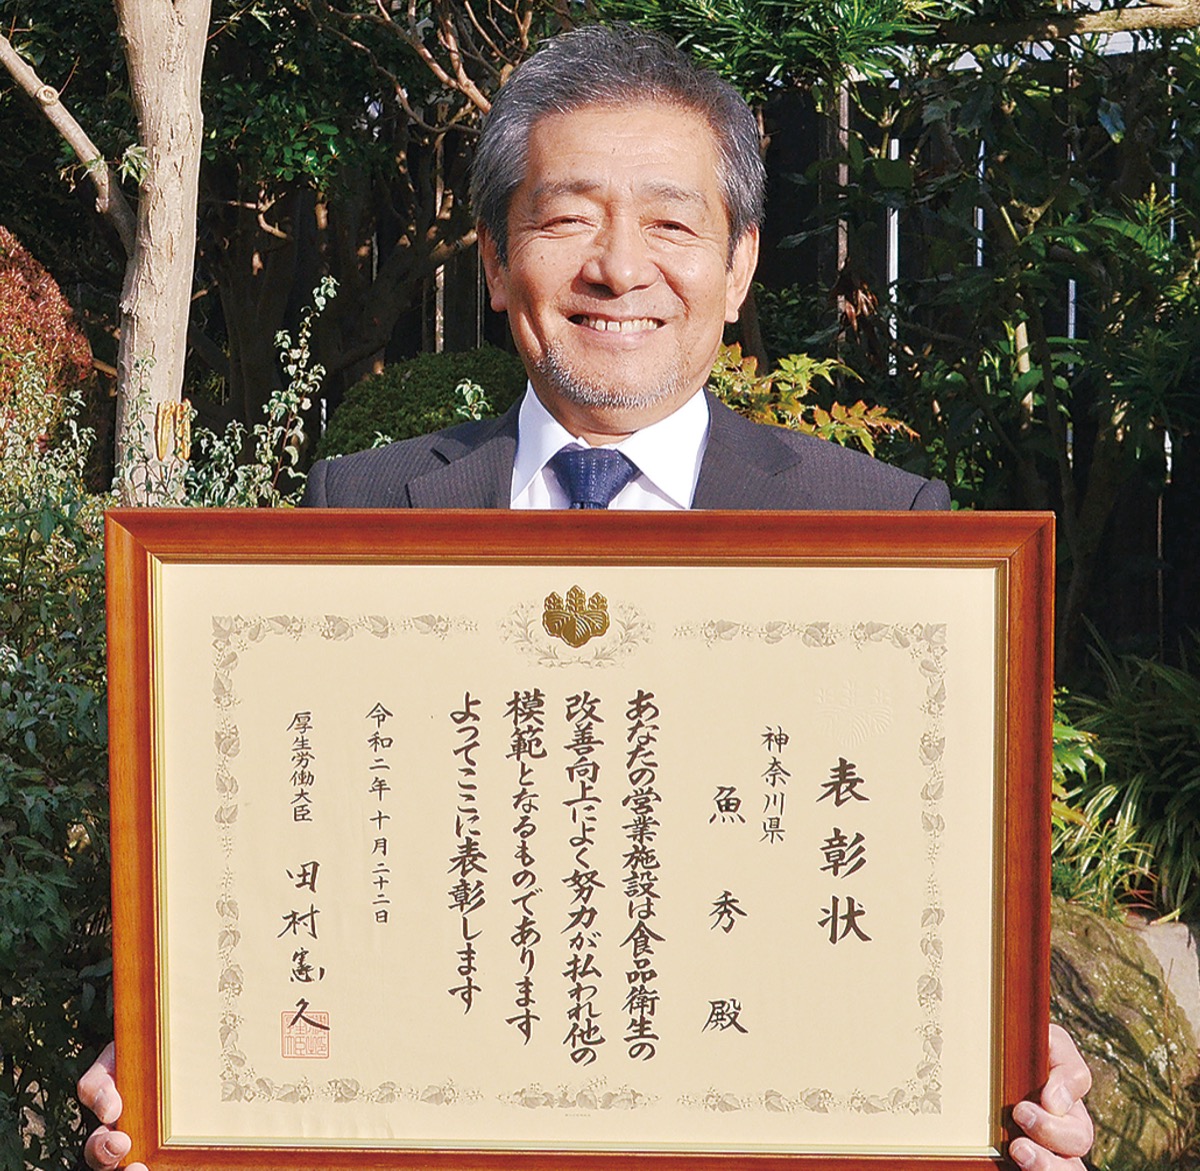 表彰状
神奈川県
魚秀殿
あなたの営業施設は食品衛生の
改善向上によく努力が払われ他の
模範となるものであります
よってここに表彰します
令和二年十月二十二日
厚生労働大臣 田村憲久